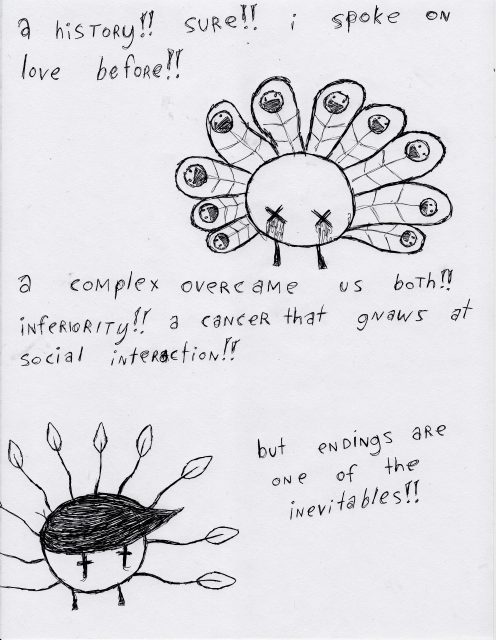 a history!! sure!! i spoke on
love before!!
a complex overcame us both!!
inferiority!! a cancer that gnaws at
social interaction!!
but endings are
one of the
inevitables!!